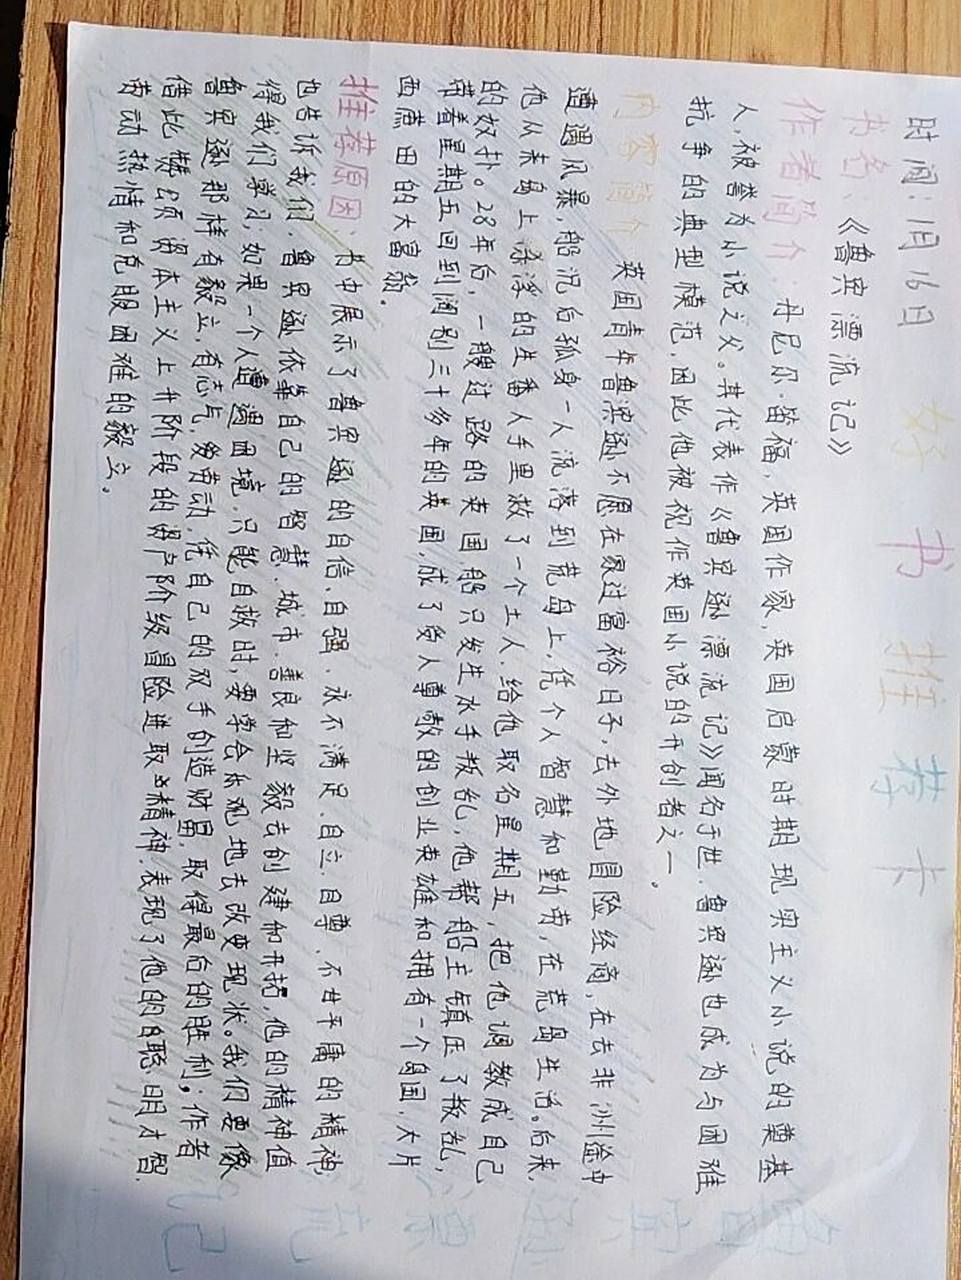 好书推荐卡
时间：1月16日
书名：《鲁宾漂流记》
作者简介：丹尼尔·笛福，英国作家，英国启蒙时期现实主义小说的奠基
人，被誉为小说之父。其代表作《鲁宾逊漂流记》闻名于世，鲁宾逊也成为与困难
抗争的典型模范，因此他被视作英国小说的开创者之一。
内容简介：英国青年鲁滨逊不愿在家过富裕日子，去外地冒险经商，在去非洲途中
遭遇风暴，船沉后孤身一人流落到荒岛上，凭个人智慧和勤劳，在荒岛生活。后来，
他从来岛上的生番人手里救了一个土人，给他取名星期五，把他调教成自己
的奴扑。28年后，一艘过路的英国船只发生水手叛乱，他帮船主镇压了叛乱，
带着星期五回到阔别三十多年的英国，成了受人尊敬的创业英雄和拥有一个岛国，大片
面蔗田的大富翁。
推荐原因：书中展示了鲁宾逊的自信、自强、永不满足、自立、自尊、不甘平庸的精神，
也告诉我们，鲁宾逊依靠自己的智慧、城市、善良和坚毅去创建和开拓，他的精神值
得我们学习；如果一个人遭遇困境，只能自救时，要学会乐观地去改变现状。我们要像
鲁宾逊那样有毅立，有志与，劳动，凭自己的双手创造财富，取得最后的胜利；作者
借此 资本主义上升阶段的资产阶级冒险进取的精神，表现了他的聪明才智，
劳动热情和克服困难的毅立。
鲁宾逊漂流记